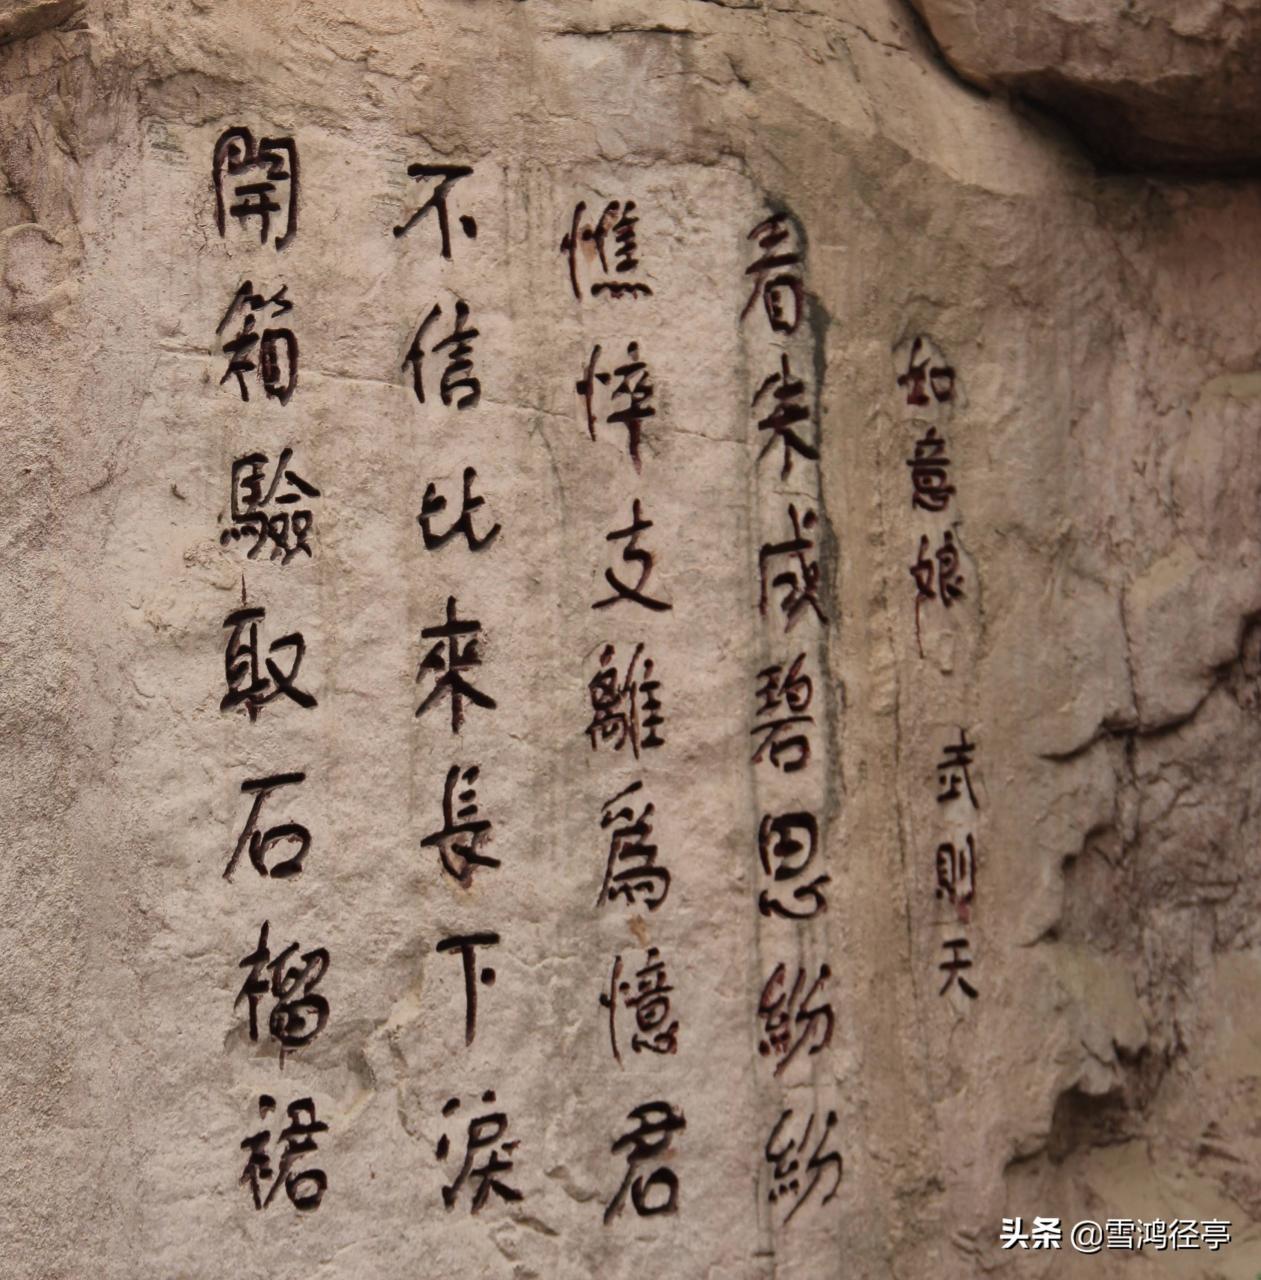 如意娘 武則天
看朱成碧思紛紛
憔悴支離爲憶君
不信比來長下淚
開箱驗取石榴裙
头条 @雪鸿径亭